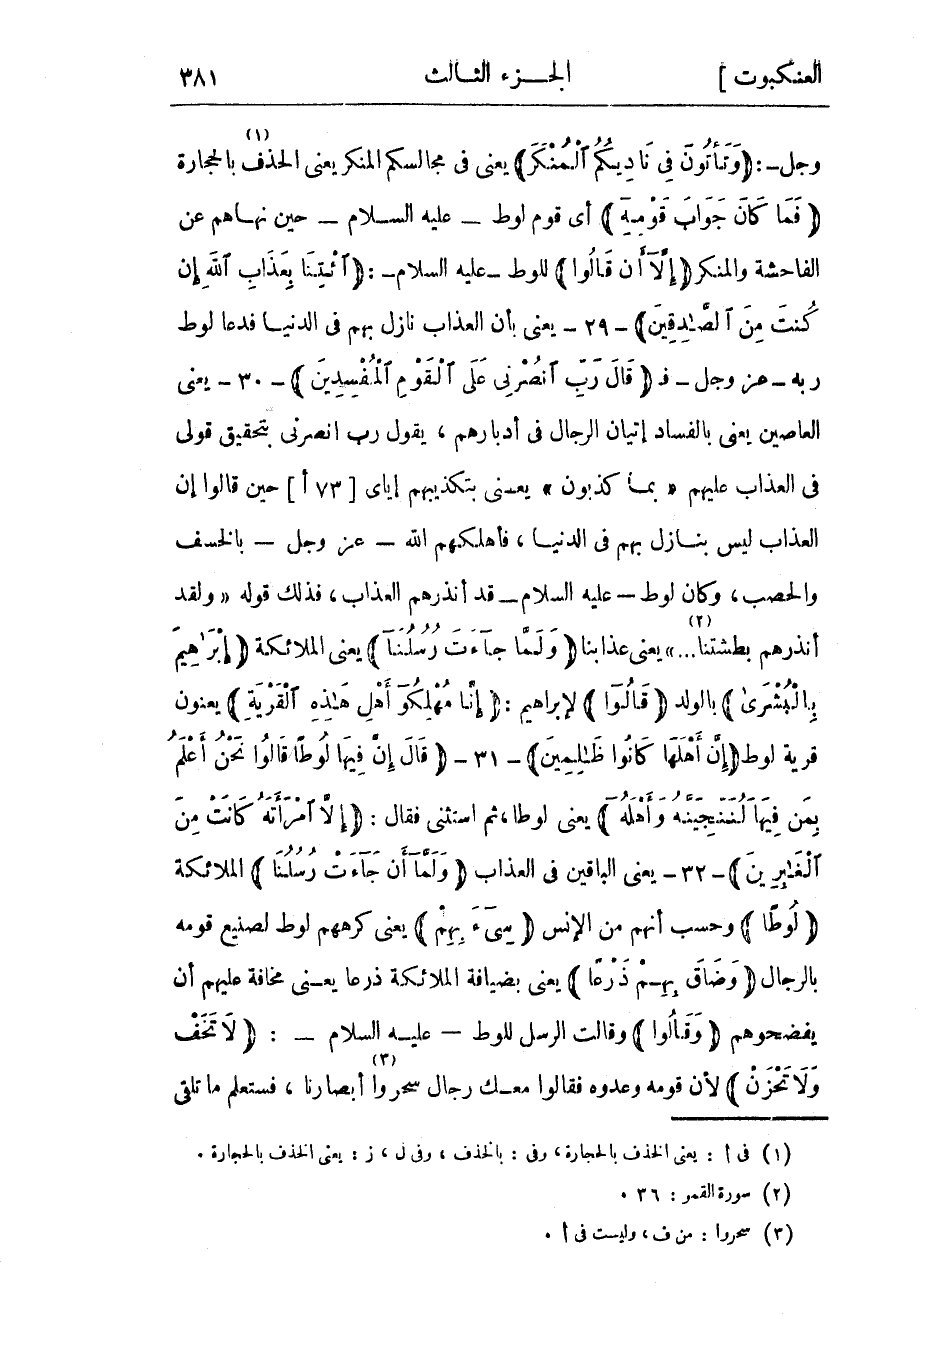 العنكبوت ] الجـــزء الثـالث ٣٨١
وجل_:﴿وَتَأْتُونَ فِى نَادِيكُمُ ٱلْمُنْكَرَ﴾ يعنى فى مجالسكم المنكر يعنى الحذف (١) بالحجارة
﴿ فَمَا كَانَ جَوَابَ قَوْمِهِٓ ﴾ أى قوم لوط _ عليه الســلام _ حين نهـاهم عن
الفاحشة والمنكر ﴿إِلَّآ أَن قَالُوا﴾ للوط _عليه السلام_ :﴿ ٱئْتِنَا بِعَذَابِ ٱللَّهِ إِن
كُنتَ مِنَ ٱلصَّٰدِقِينَ﴾ _ ٢٩ _ يعنى بأن العذاب نازل بهم فى الدنيـا فدعا لوط
ربه _ عز وجل _ فـ ﴿ قَالَ رَبِّ ٱنصُرْنِى عَلَى ٱلْقَوْمِ ٱلْمُفْسِدِينَ ﴾ _ ٣٠ _ يعنى
العاصين يعنى بالفساد إتيان الرجال فى أدبارهم ، يقول رب انصرنى بتحقيق قولى
فى العذاب عليهم « بمـا كذبون » يعـنى بتكذيبهم إياى [ ٧٣ أ ] حين قالوا إن
العذاب ليس بنـازل بهم فى الدنيـا ، فأهلكهم الله _ عز وجل _ بالخسف
والحصب ، وكان لوط _ عليه السلام _ قد أنذرهم العذاب ، فذلك قوله « ولقد
أنذرهم بطشتنا (٢) ...» يعنى عذابنا ﴿ وَلَمَّا جَآءَتْ رُسُلُنَآ ﴾ يعنى الملائكة ﴿ إِبْرَٰهِيمَ
بِالْبُشْرَىٰ ﴾ بالولد ﴿ قَالُوٓا ﴾ لإبراهيم : ﴿ إِنَّا مُهْلِكُوٓ أَهْلِ هَٰذِهِ ٱلْقَرْيَةِ ﴾ يعنون
قرية لوط ﴿إِنَّ أَهْلَهَا كَانُوا ظَٰلِمِينَ﴾ _ ٣١ _ ﴿ قَالَ إِنَّ فِيهَا لُوطًا قَالُوا نَحْنُ أَعْلَمُ
بِمَن فِيهَا لَنُنَجِّيَنَّهُ وَأَهْلَهُٓ ﴾ يعنى لوطا ، ثم استثنى فقال : ﴿ إِلَّا ٱمْرَأَتَهُ كَانَتْ مِنَ
ٱلْغَٰبِرِينَ ﴾ _ ٣٢ _ يعنى الباقين فى العذاب ﴿ وَلَمَّآ أَن جَآءَتْ رُسُلُنَا ﴾ الملائكة
﴿ لُوطًا ﴾ وحسب أنهم من الإنس ﴿ سِىٓءَ بِهِمْ ﴾ يعنى كرههم لوط لصنيع قومه
بالرجال ﴿ وَضَاقَ بِهِـمْ ذَرْعًا ﴾ يعنى بضيافة الملائكة ذرعا يعـنى مخافة عليهم أن
يفضحوهم ﴿ وَقَالُوا ﴾ وقالت الرسل للوط _ عليـه السلام _ : ﴿ لَا تَخَفْ
وَلَا تَحْزَنْ ﴾ لأن قومه وعدوه فقالوا معـك رجال سحروا (٣) أبصارنا ، فستعلم ما تلقى
(١) فى أ : يعنى الخذف بالحجارة ، وفى : بالخذف ، وفى ل ، ز : يعنى الخذف بالحجارة .
(٢) سورة القمر : ٣٦ .
(٣) سحروا : من ف ، وليست فى أ .